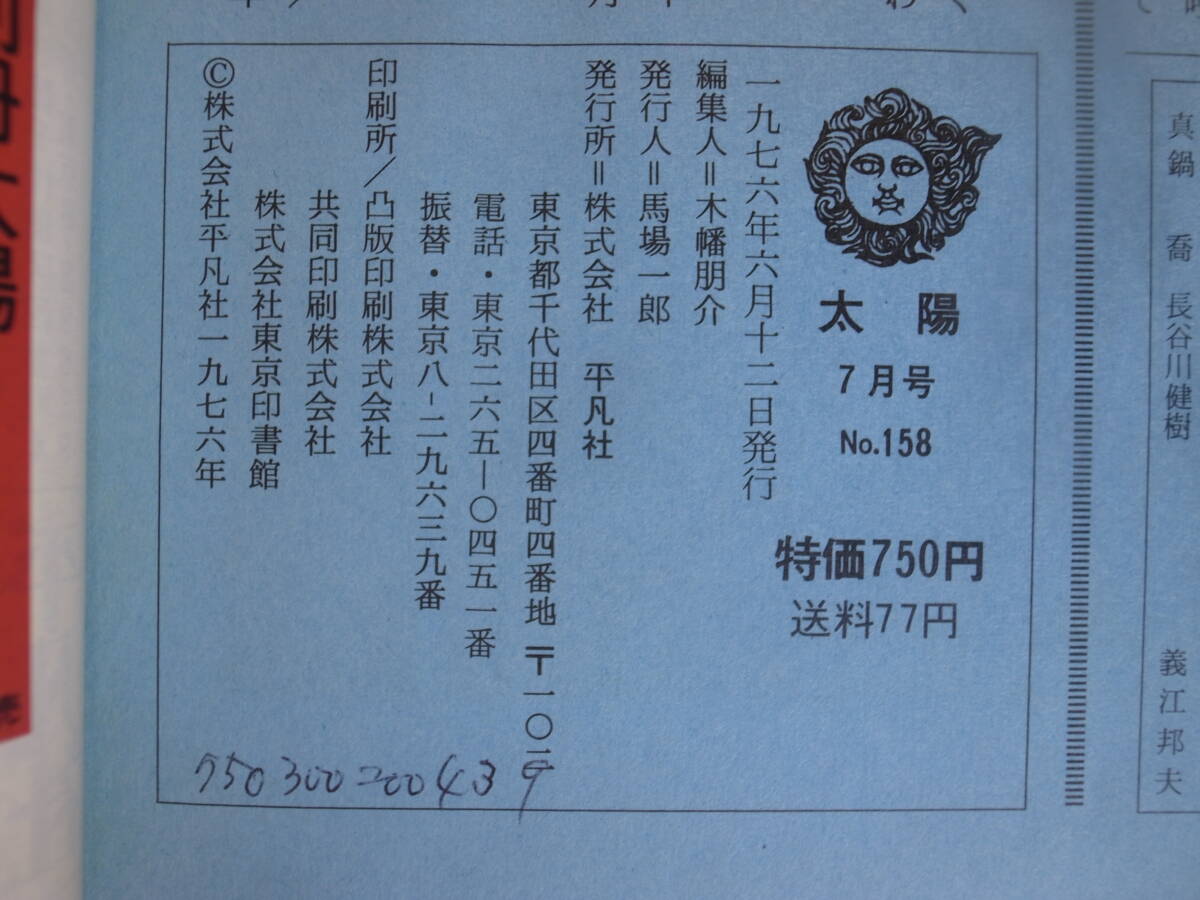 太陽
7月号
No.158
特価750円
送料77円
一九七六年六月十二日発行
編集人=木幡朋介
発行人=馬場一郎
発行所=株式会社 平凡社
東京都千代田区四番町四番地 〒一〇二
電話・東京二六五―〇四五一番
振替・東京八-二九六三九番
印刷所/凸版印刷株式会社
共同印刷株式会社
株式会社東京印書館
©株式会社平凡社一九七六年
真鍋 喬 長谷川健樹
義江邦夫